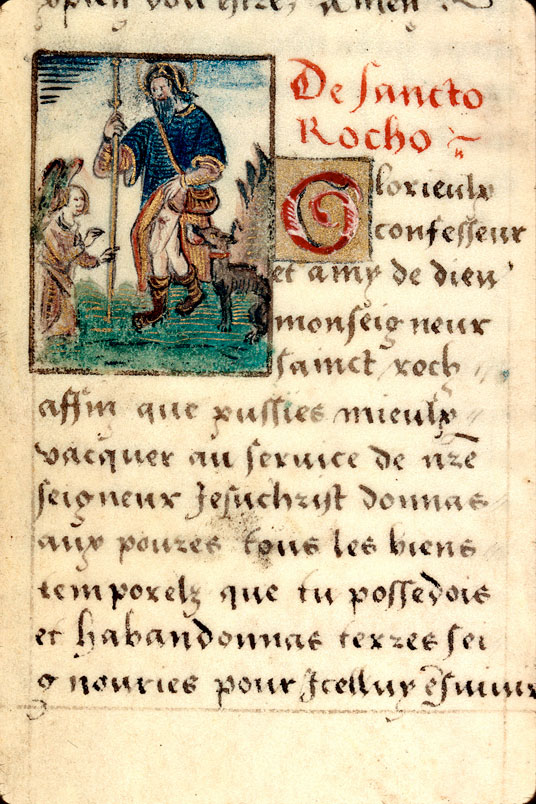 De sancto
Rocho
Glorieulx
confesseur
et amy de dieu
monseigneur
sainct roch
affin que pussies mieulx
vacquer au seruice de nr̃e
seigneur Jesuchrist donnas
aux poures tous les biens
temporelz que tu possedois
et habandonnas terres sei
gnouries pour Jcelluy